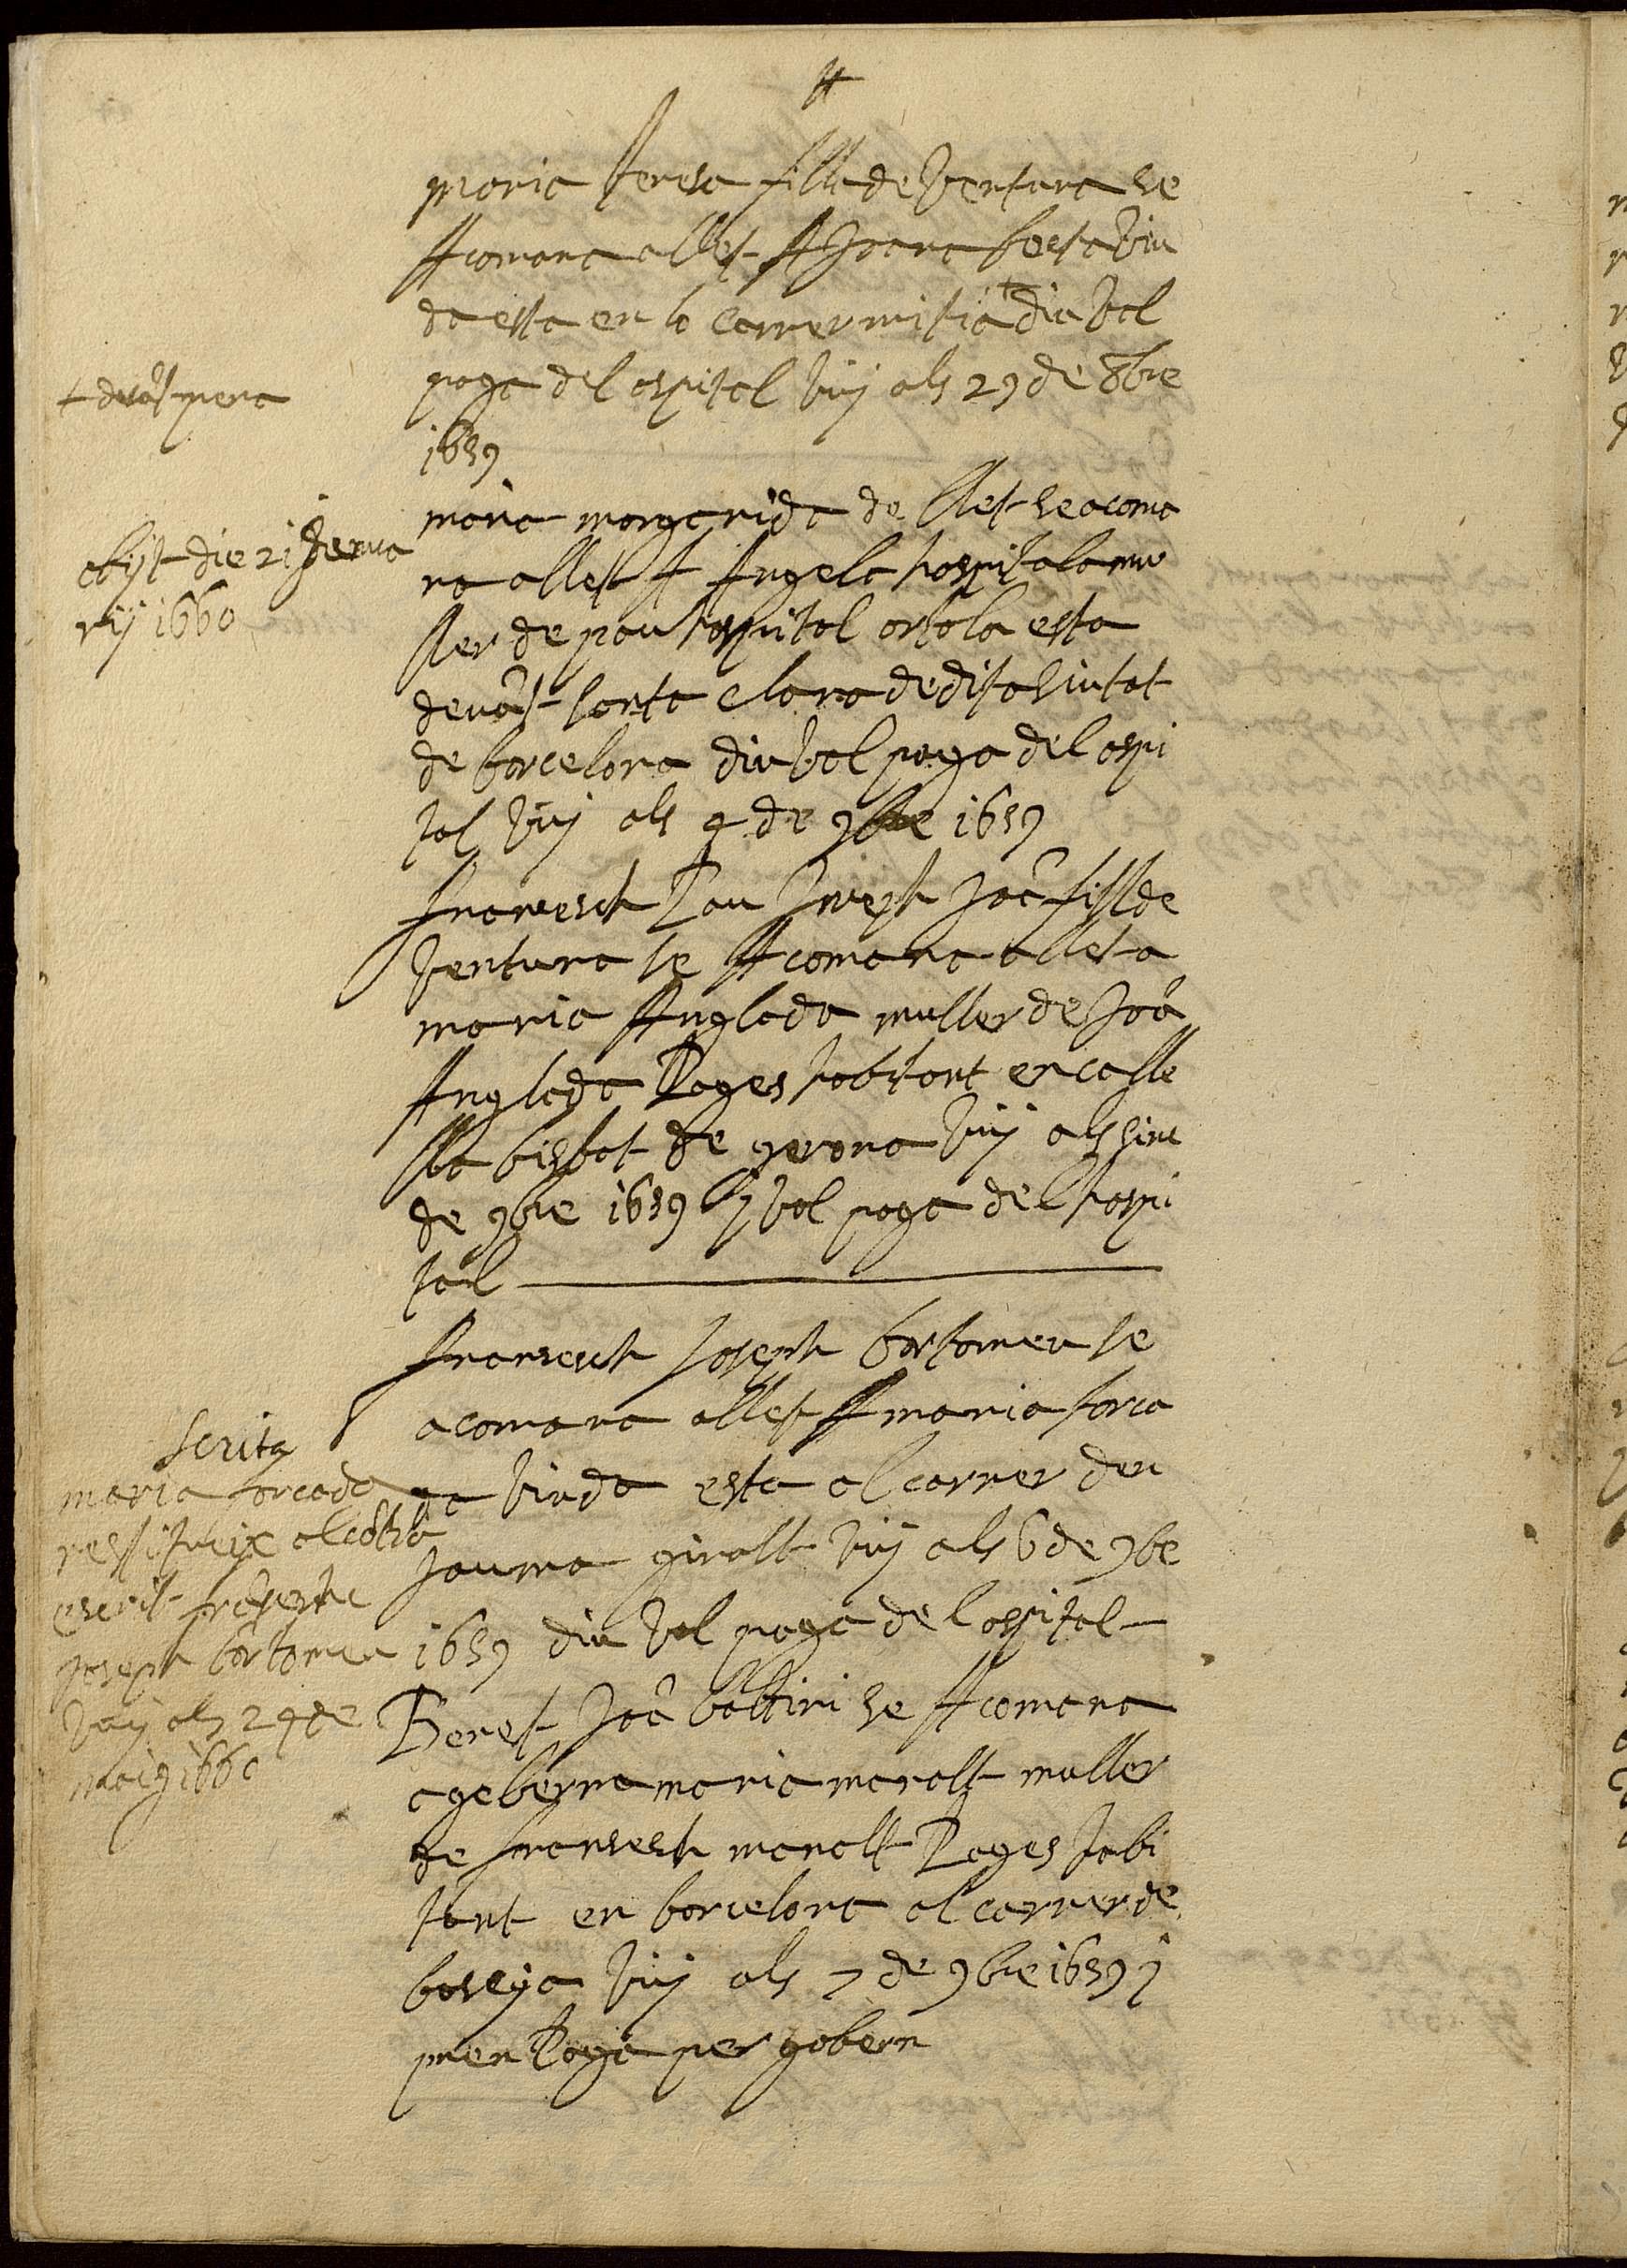 #
Maria Teresa filla de Ventura se
Acomana allet A Joana bosta viu
da esta en lo carrer mitia + diu vol
paga del ospital vuy als 29 de 8bre
1659
+ devât pera
maria margarida de llet se acoma
na allet A Angela hospitala mu
ller de pau hospital ortola esta
devât santa clara de dita siutat
de barcelona diu vol paga del ospi
tal vuy als 4 de 9bre 1659
obijt die 21 Janua
rij 1660
fransesch Pau Joseph Joâ fill de
ventura se Acomana allet a
maria Anglada muller de Joâ
Anglada Pages habitant en calle
lla bisbat de gerona vuy als sinc
de 9bre 1659 y vol paga del hospi
tal
fransesch Joseph bortomeu se
acomana allet A maria forca
da viuda esta al carrer den
Jauma giralt vuy als 6 de 9be
1659 diu vol paga del ospital
scrita
maria forcada
restitueix al
escrit fransesch
Joseph bortomeu
vuy als 24 de
maig 1660
Benet Joâ se Acomana
a goberna maria maralt muller
de fransesch maralt Pages habi
tant en barcelona al carrer de
boseya vuy als 7 de 9bre 1659 y
pren Paga per gobern